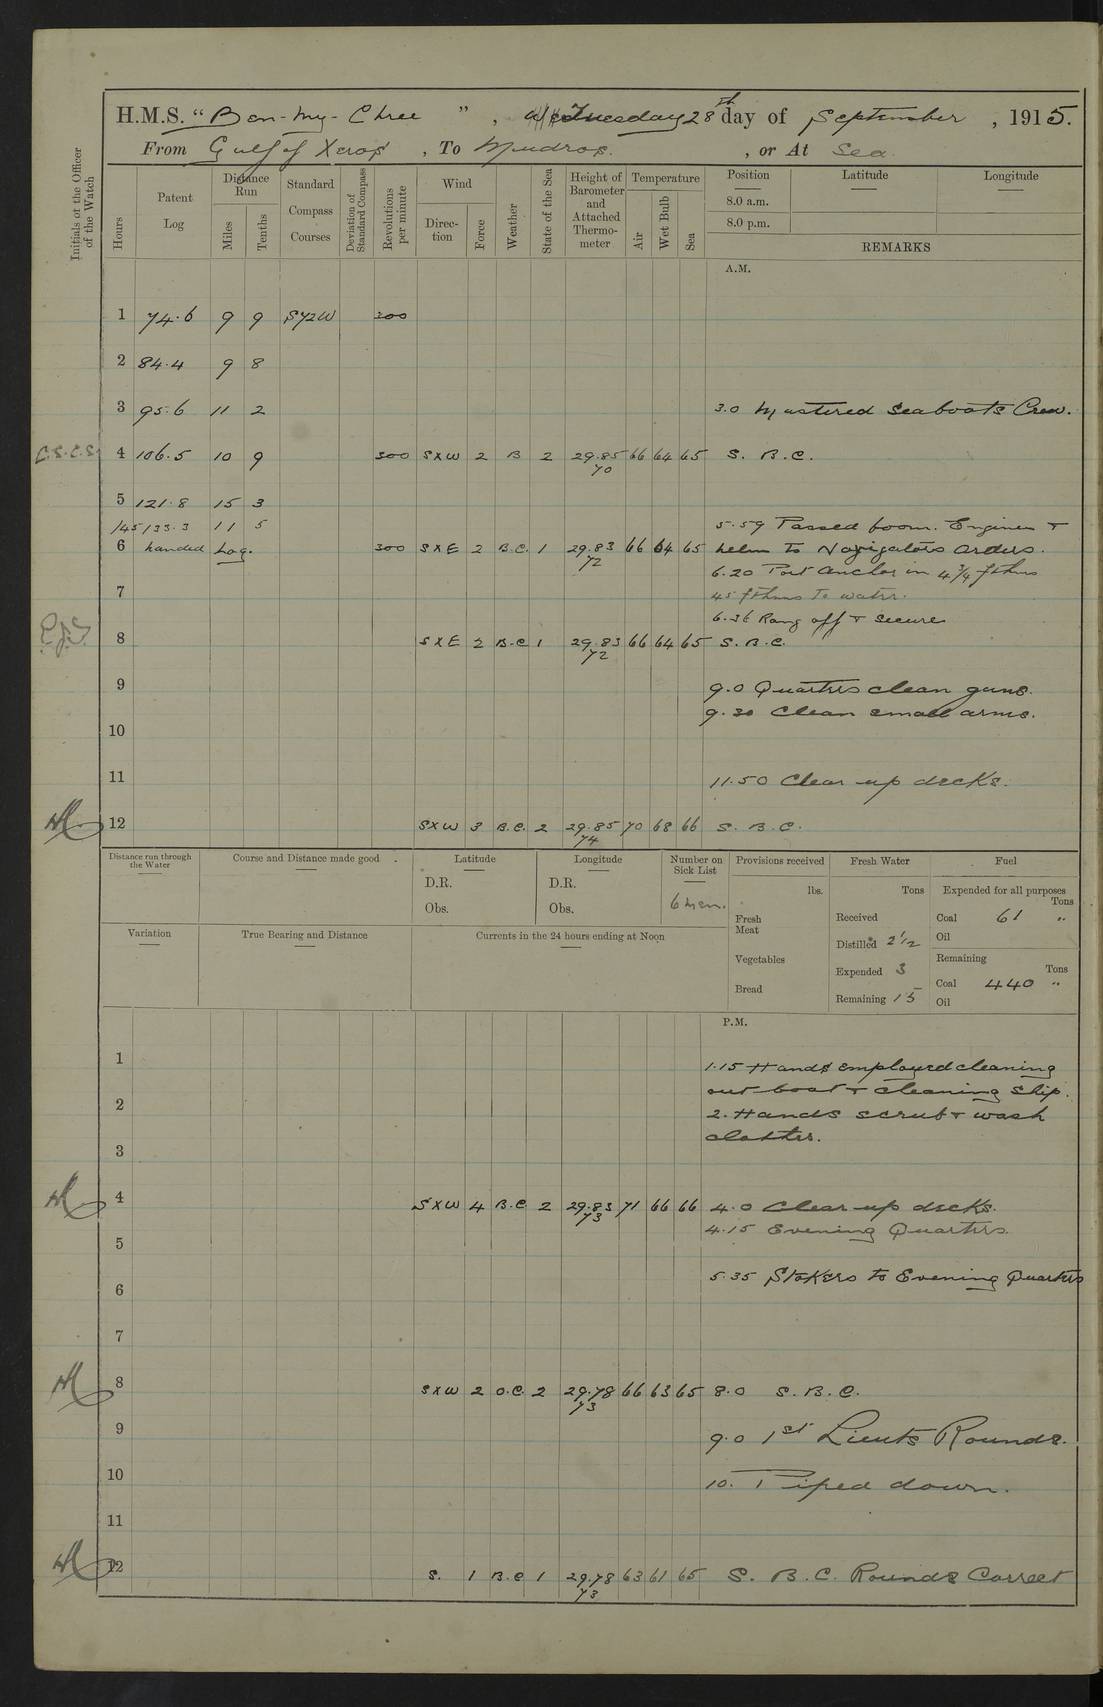 H.M.S. "Ben-my-Chree", Tuesday 28th day of September, 1915.
From Gulf of Xeros, To Mudros., or At Sea
Initials of the Officer of the Watch
Hours
Patent Log
Distance Run
Miles
Tenths
Standard Compass Courses
Deviation of Standard Compass
Revolutions per minute
Wind
Direction
Force
Weather
State of the Sea
Height of Barometer and Attached Thermometer
Temperature
Air
Wet Bulb
Sea
Position
Latitude
Longitude
8.0 a.m.
8.0 p.m.
REMARKS
A.M.
1 74.6 9 9 S72W 300
2 84.4 9 8
3 95.6 11 2 3.0 Mustered Seaboats Crew.
C.S.C.S. 4 106.5 10 9 300 SXW 2 B 2 29.85 70 66 64 65 S. B. C.
5 121.8 15 3
145 133.3 11 5 5.59 Passed boom. Engines &
6 handed Log. 300 SXE 2 B.C. 1 29.83 72 66 64 65 helm to Navigators orders.
6.20 Port anchor in 4 3/4 fthms
7 45 fthms to water.
6.36 Rang off & secure
8 SXE 2 B.C 1 29.83 72 66 64 65 S. B. C.
9 9.0 Quarters clean guns.
9.30 Clean small arms.
10
11 11.50 Clear up decks.
12 SXW 3 B.C. 2 29.85 74 70 68 66 S. B. C.
Distance run through the Water
Course and Distance made good
Latitude
D.R.
Obs.
Longitude
D.R.
Obs.
Number on Sick List
6 men.
Provisions received
lbs.
Fresh Meat
Vegetables
Bread
Fresh Water
Tons
Received
Distilled 2 1/2
Expended 3
Remaining 15
Fuel
Expended for all purposes
Tons
Coal 61 "
Oil
Remaining
Tons
Coal 440 "
Oil
Variation
True Bearing and Distance
Currents in the 24 hours ending at Noon
P.M.
1 1.15 Hands employed cleaning
out boat & cleaning ship.
2 2. Hands scrub & wash
clothes.
3
4 SXW 4 B.C 2 29.83 73 71 66 66 4.0 Clear up decks.
4.15 Evening Quarters.
5
5.35 Stokers to Evening Quarters
6
7
8 SXW 2 O.C. 2 29.78 73 66 63 65 8.0 S. B. C.
9 9.0 1st Lieuts Rounds.
10 10. Piped down.
11
12 S. 1 B.C 1 29.78 73 63 61 65 S. B. C. Rounds Correct